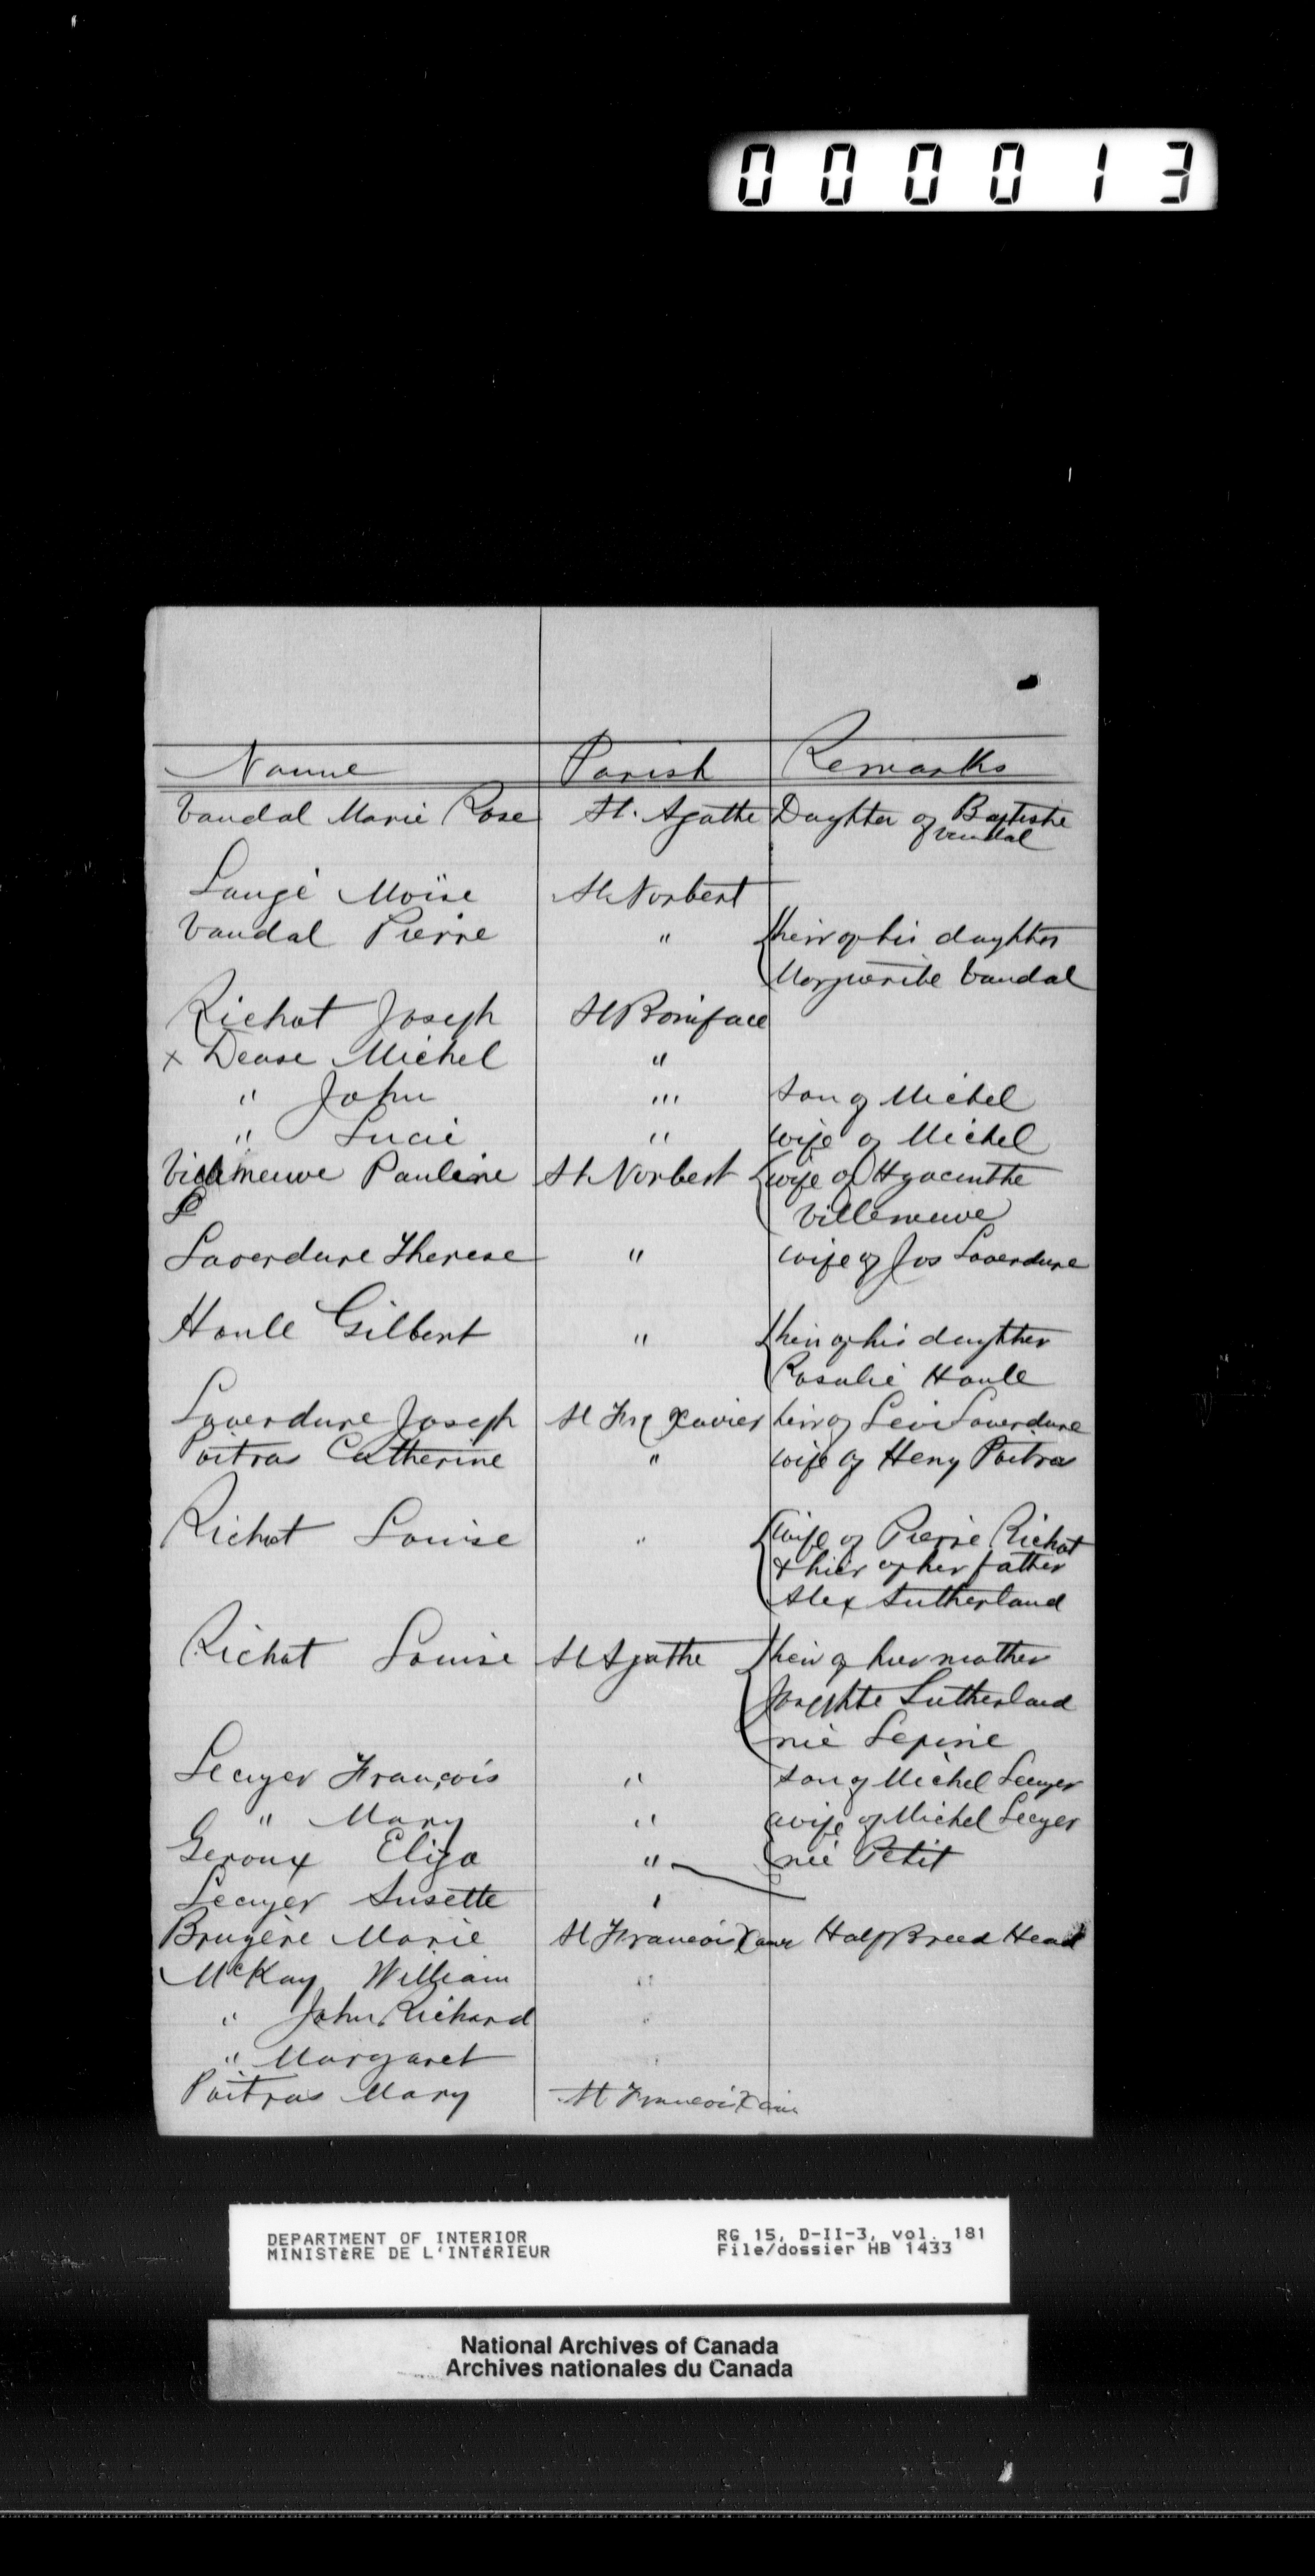 000013
Name Parish Remarks
Vandal Marie Rose St. Agathe Daughter of Baptiste
Vandal
Laugé Moïse St Norbert
Vandal Pierre " heir of his daughter
Marguerite Vandal
Richot Joseph St Boniface
x Dease Michel "
" John " son of Michel
" Lucie " wife of Michel
Villeneuve Pauline St Norbert wife of Hyacinthe
Villeneuve
Laverdure Therese " wife of Jos Laverdure
Houle Gilbert " heir of his daughter
Rosalie Houle
Laverdure Joseph St Frs Xavier heir of Levi Laverdure
Poitras Catherine " wife of Heny Poitras
Richot Louise " wife of Pierre Richot
& hier of her father
Alex Sutherland
Richot Louise St Agathe heir of her mother
Josephte Sutherland
née Lepine
Lecuyer François " son of Michel Lecuyer
" Mary " wife of Michel Lecyer
Geroux Eliza " née Petit
Lecuyer Susette "
Bruyère Marie St Francois Xavier Half Breed Head
McKay William "
" John Richard "
" Margaret "
Poitras Mary St Francois Xavier
DEPARTMENT OF INTERIOR RG 15, D-II-3, vol. 181
MINISTèRE DE L'INTéRIEUR File/dossier HB 1433
National Archives of Canada
Archives nationales du Canada